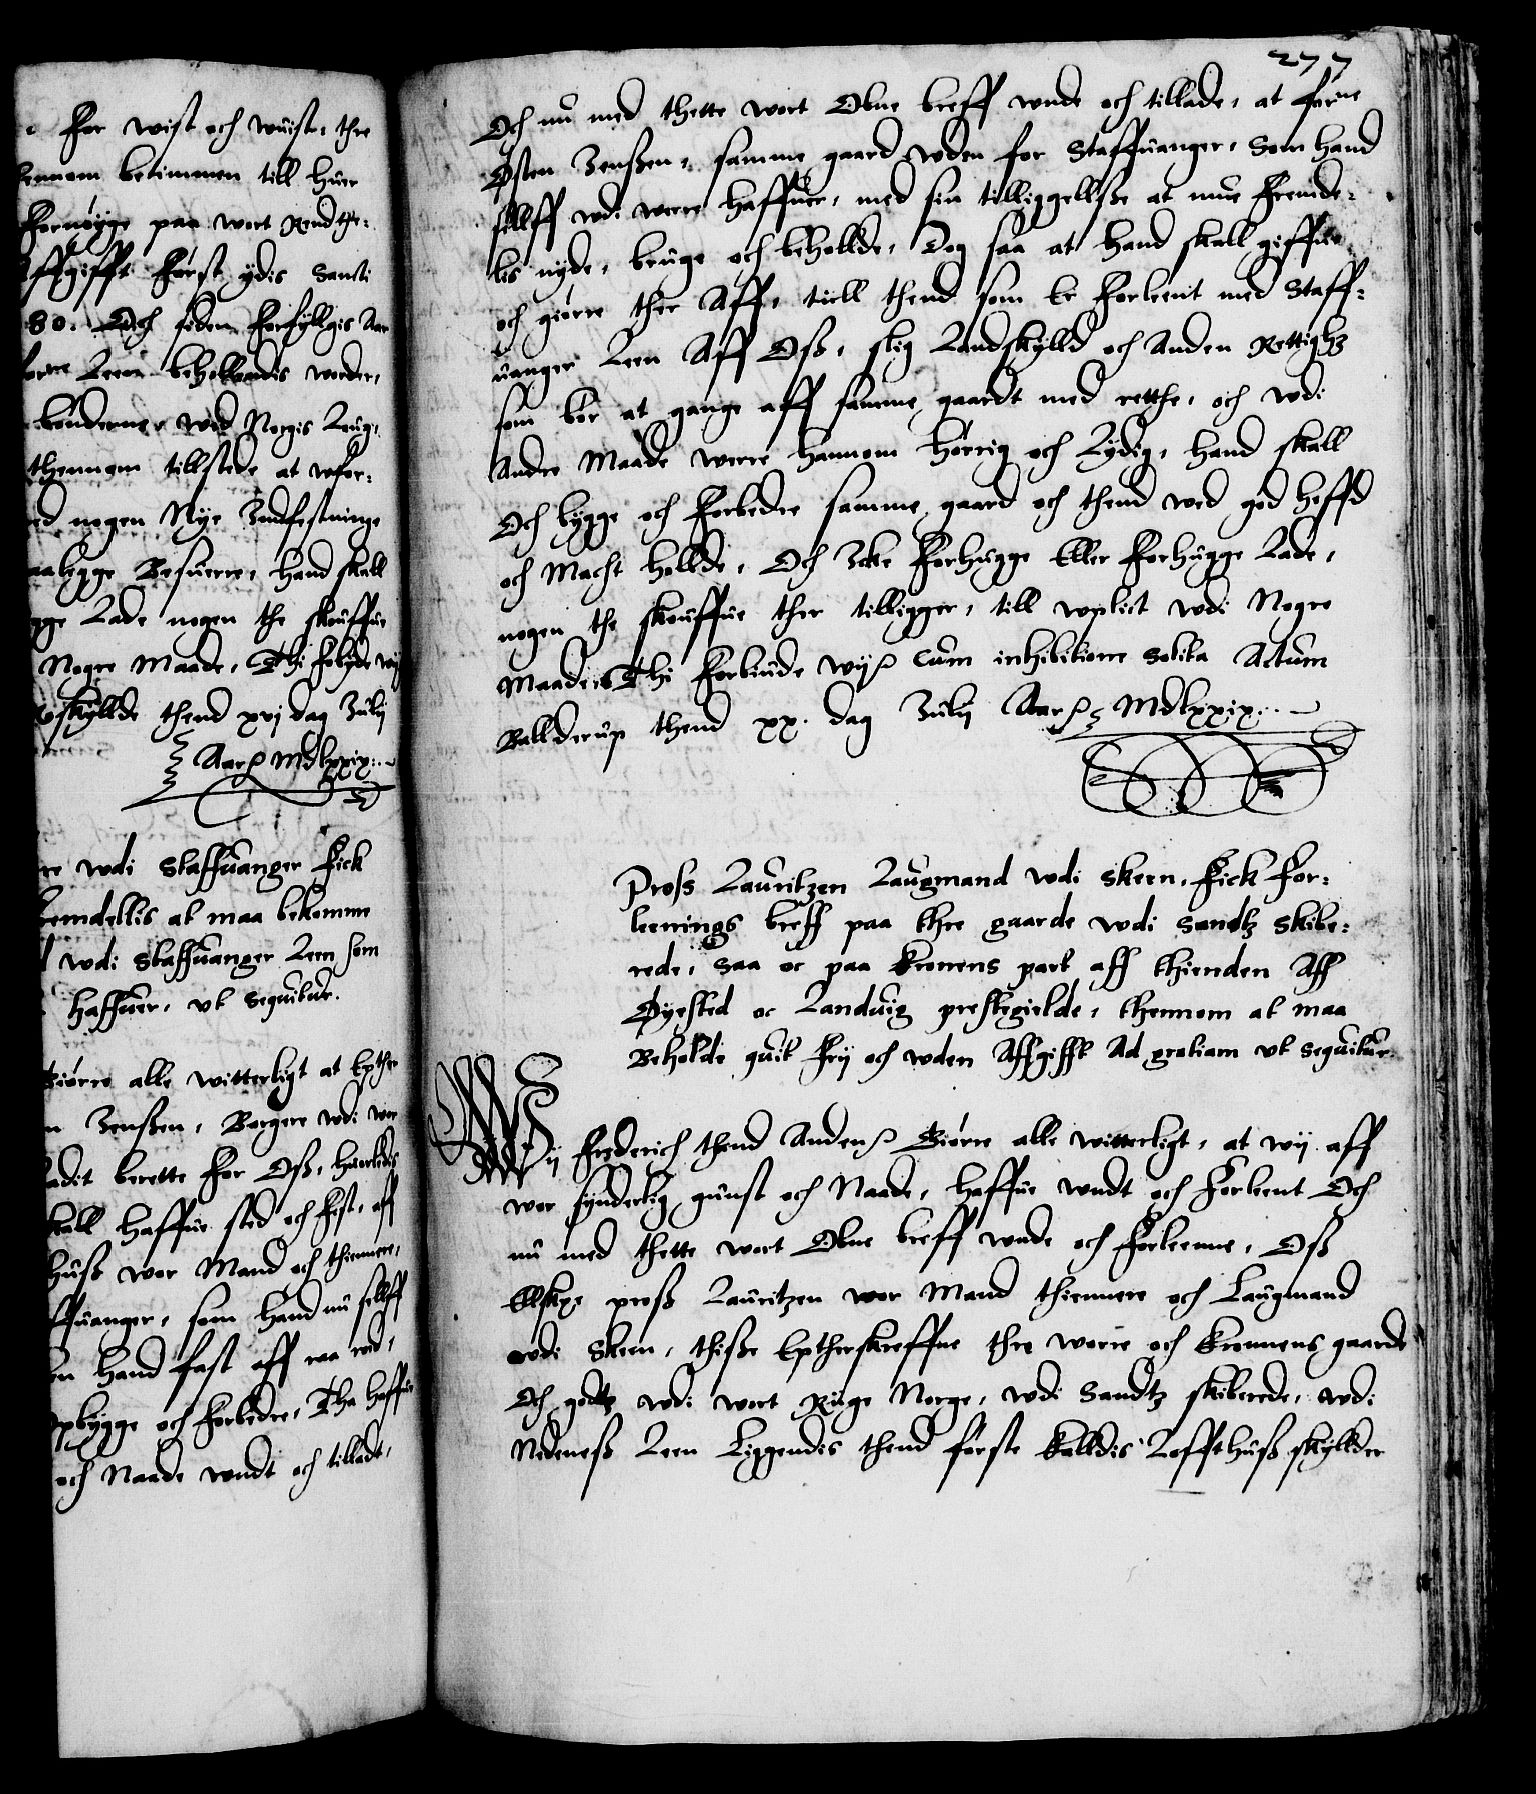 For wist och wuist, thre
hennom betimmen till huer
fornøyge paa wort Rendthe-
Affgifft først ydis Sancti
80. Och siden forfyllgis Aar
forne Leen behollendis worder,
bønderne, wed Norgis Laug,
thennom tillstede at wfor-
med nogen Nye Indfestninge
paalegge Besuerre, hand skall
hugge Lade nogen the skouffue
Nogre Maade, Thi forbyde wij
skyllde thend xvj dag Julij
Aar MdLxxix
re wdi Staffuanger Fick
Fremdellis at maa bekomme
wdi Staffuanger Leen som
haffuer, vt sequitur.
Giørre alle witterligt at Epther
n Jenssen, Borgere wdi wor
ladit berette for Oss, huorledis
skall haffue sted och fest, aff
huss wor Mand och thiennere,
ffuanger, som hand nu sellff
en hand fast aff raa rod,
opbygge och forbedre, Tha haffue
och Naade wndt och tilladt,
277
Och nu med thette wort Obne breff wnde och tillade, at forne
Østen Jenssen, samme gaard wden for Staffuanger, Som hand
sellff wdi werre haffuer, med sin tilliggellsse at mue fremde-
lis nyde, bruge och beholde, Dog saa at hand skall giffue
och giørre ther Aff, tiell thend som Er forleent med Staff-
uanger Leen Aff Oss, slig Landskylld och Anden Rettighz
som bør at gange aff samme gaardt med rette, och wdi
Andre Maade werre hannom hørrig och Lydig, hand skall
Och bygge och forbedre samme gaard och thend wed god heffd
och Macht hollde, Och Icke forhugge Eller forhugge Lade,
nogen the skouffue ther tilligger, till wplict wdi Nogre
Maade, Thi forbiude wij cum inhibitione solita Actum
Ballderup thend xx. dag Julij Aar MdLxxix
Pross Lauritzen Laugmand wdi Skeen, Fick For-
leenings breff paa thre gaarde wdi Sandtz Skibe-
rede, Saa oc paa Kronens part aff thienden Aff
Øyested oc Landuig prestegielde, thennom at maa
Beholde quit Frij och wden Affgifft Ad gratiam vt sequitur
Wij Frederich thend Anden Giørre alle witterligt, at wij aff
wor synderlig gunst och Naade, haffue wndt och forleent Och
nu med thette wort Obne breff wnde och forleenne, Oss
Ellskge pross Lauritzen wor Mand thiennere och Laugmand
wdi Skeen, thisse Eptherskreffne thre worre och Kronnens gaarde
Och godtz wdi wort Riige Norge, wdi Sandtz skiberede, wdi
Nedeness Leen Liggendis thend første kalldis Loffthuss skyllder